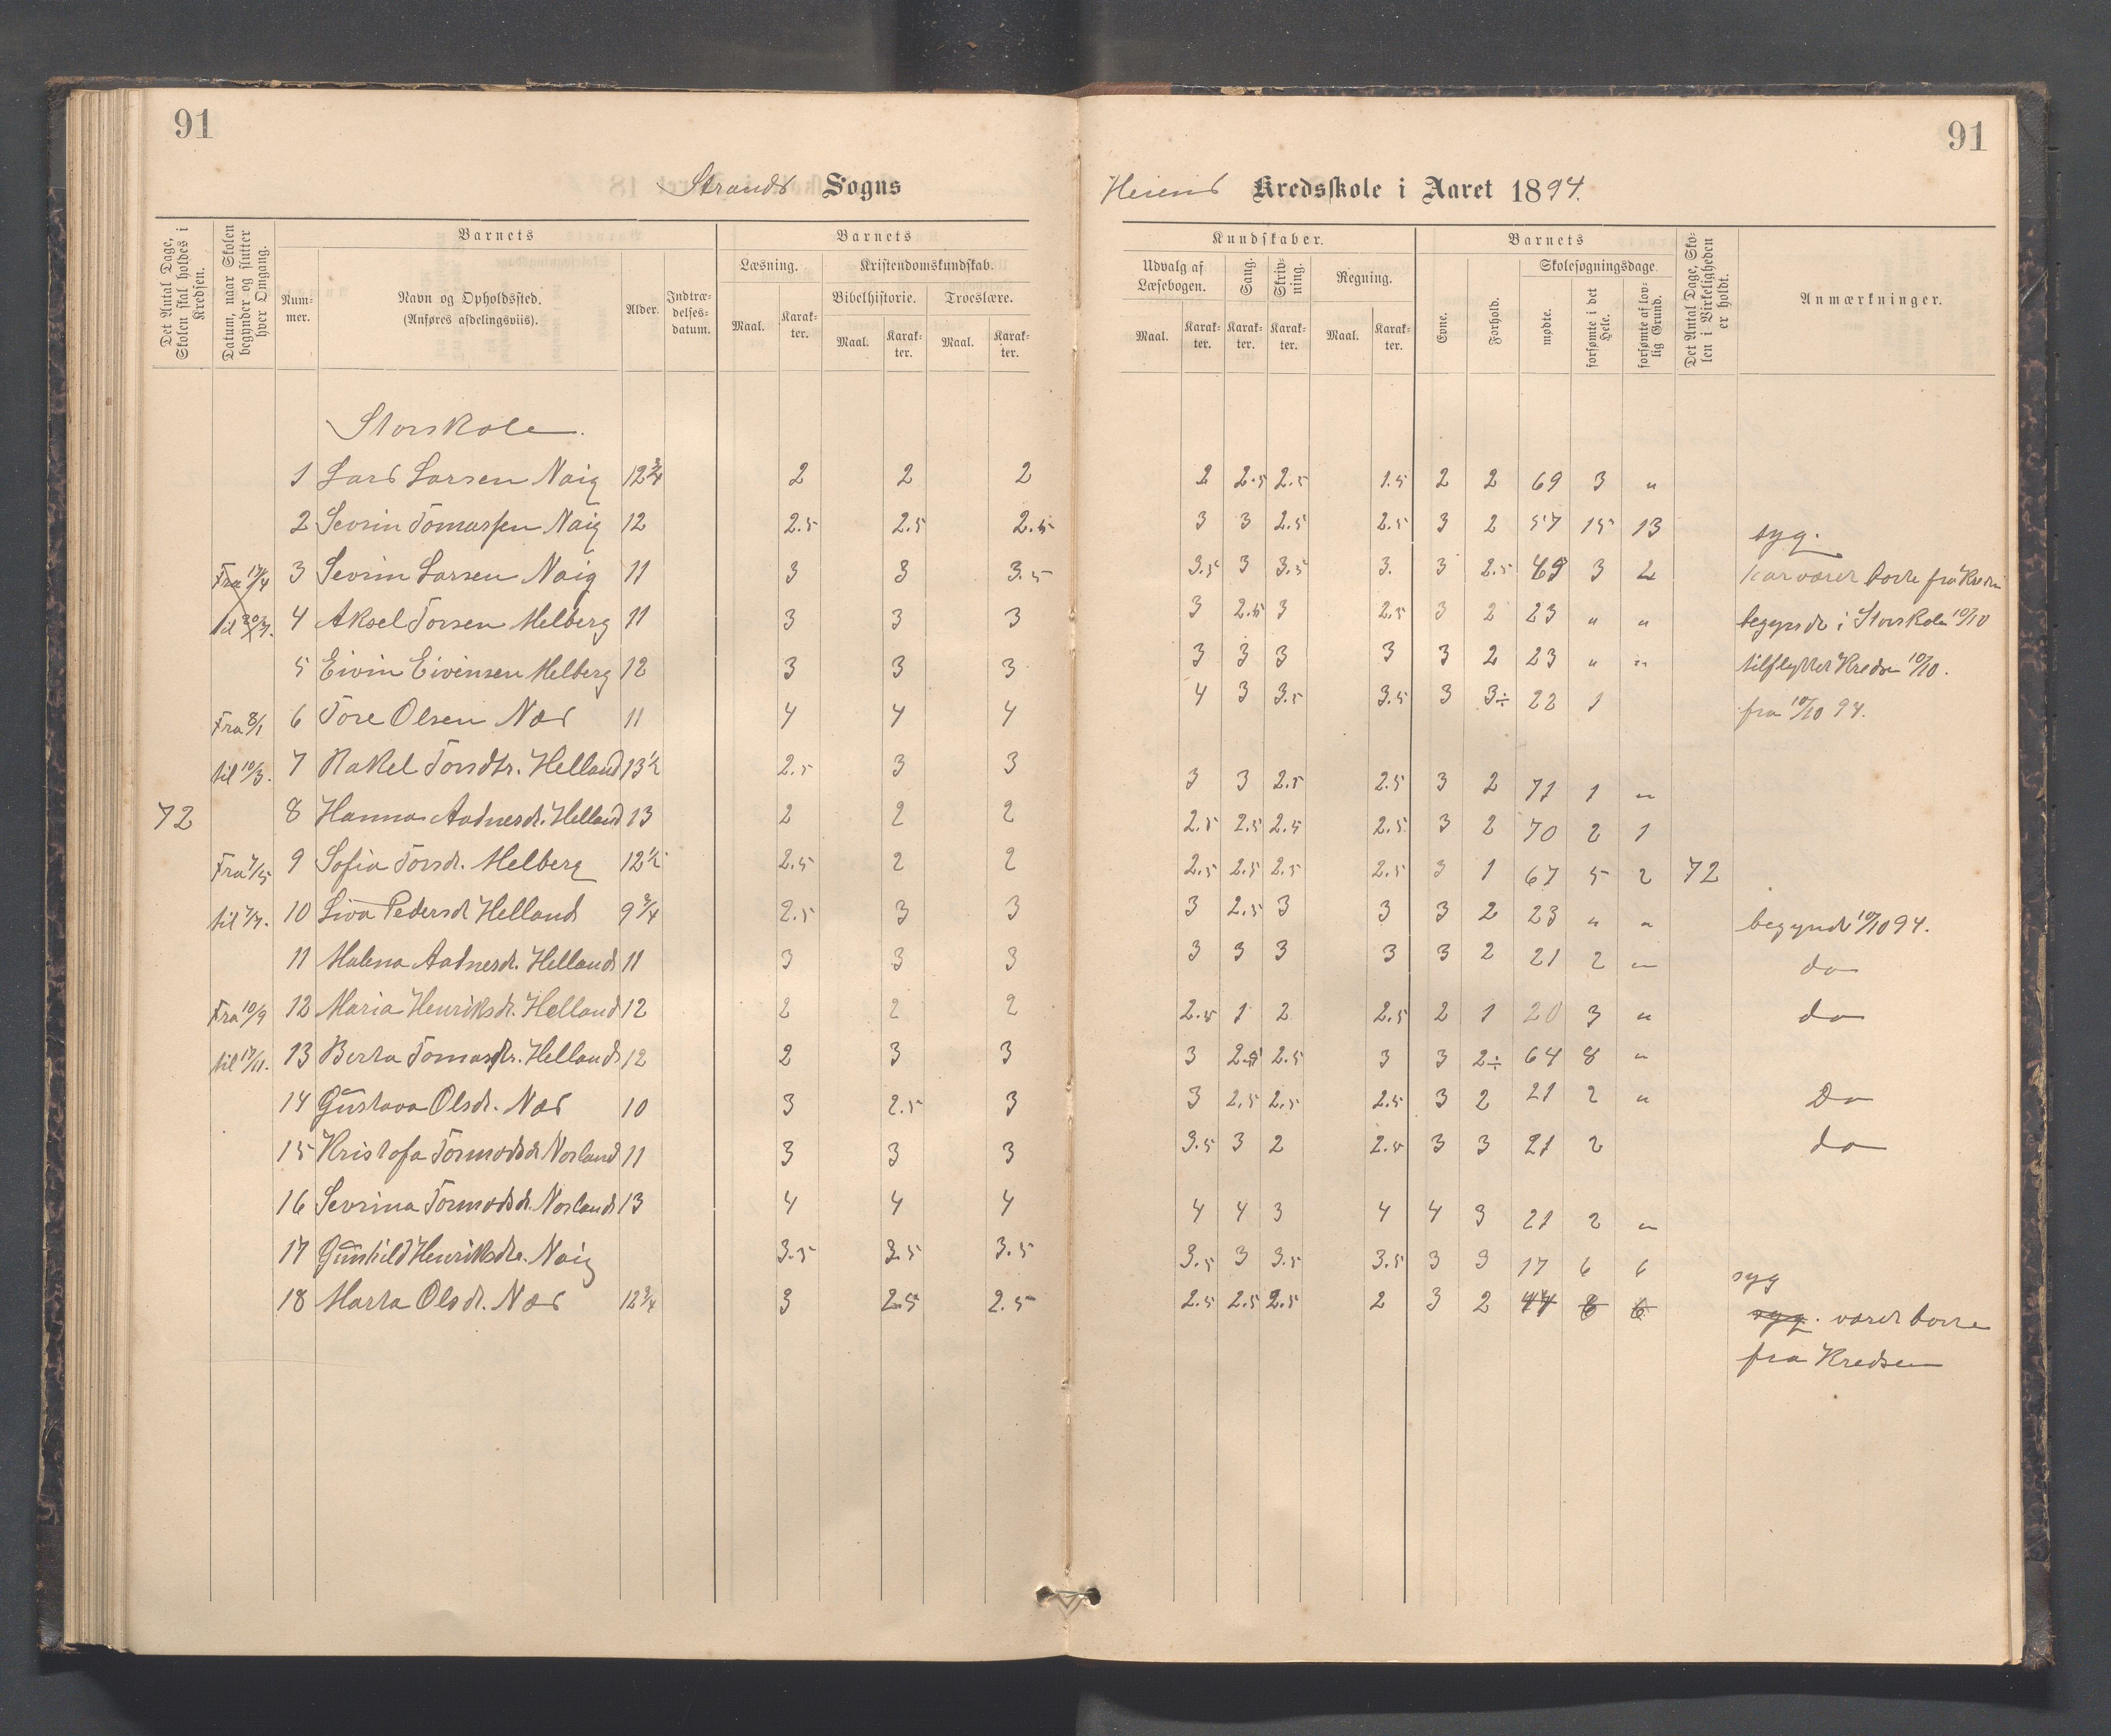 91
91
Strands Sogns
Heiens Kredsskole i Aaret 1894.
Det Antal Dage, Skolen skal holdes i Kredsen.
Datum, naar Skolen begynder og slutter hver Omgang.
Barnets
Barnets
Kundskaber.
Barnets
Det Antal Dage, Skolen i Virkeligheden er holdt.
Anmærkninger.
Nummer.
Navn og Opholdssted.
(Anføres afdelingsviis).
Alder.
Indtrædelsesdatum.
Læsning.
Kristendomskundskab.
Bibelhistorie.
Troeslære.
Maal.
Karakter.
Maal.
Karakter.
Maal.
Karakter.
Udvalg af Læsebogen.
Sang.
Skrivning.
Regning.
Maal.
Karakter.
Karakter.
Karakter.
Maal.
Karakter.
Evne.
Forhold.
Skolesøgningsdage.
mødte.
forsømte i det Hele.
forsømte af lovlig Grund.
Storskole.
1 Lars Larsen Naig 12¾ 2 2 2 2 2.5 2.5 1.5 2 2 69 3 "
2 Sevrin Tomassen Naig 12 2.5 2.5 2.5 3 3 2.5 2.5 3 2 57 15 13 syg.
Fra 17/4 3 Sevrin Larsen Naig 11 3 3 3.5 3.5 3 3.5 3. 3 2.5 69 3 2 har været borte fra
til 4 Aksel Torsen Melberg 11 3 3 3 3 2.5 3 2.5 3 2 23 " " begynde i Storskolen 10/10
5 Eivin Eivensen Melberg 12 3 3 3 3 3 3 3 3 2 23 " " tilflyttet Kredsen 10/10.
Fra 8/1 6 Tore Olsen Næs 11 4 4 4 4 3 3.5 3.5 3 3÷ 22 1 fra 10/10 94.
til 10/3. 7 Rakel Torsdtr. Helland 13½ 2.5 3 3 3 3 2.5 2.5 3 2 71 1 "
72 8 Hanna Aadnesdr. Helland 13 2 2 2 2.5 2.5 2.5 2.5 3 2 70 2 1
Fra 7/5 9 Sofia Torsdr. Melberg 12½ 2.5 2 2 2.5 2.5 2.5 2.5 3 1 67 5 2 72
til 7/7. 10 Siva Pedersdr Helland 9¾ 2.5 3 3 3 2.5 3 3 3 2 23 " " begyndt 10/10 94.
11 Malena Aadnesdr. Helland 11 3 3 3 3 3 3 3 3 2 21 2 " do
Fra 10/9 12 Maria Henriksdr. Helland 12 2 2 2 2.5 1 2 2.5 2 1 20 3 " do
til 17/11. 13 Berta Tomasdtr. Helland 12 2 3 3 3 2.5 2.5 3 3 2÷ 64 8 "
14 Gustava Olsdr. Næs 10 3 2.5 3 3 2.5 2.5 2.5 3 2 21 2 " Do
15 Kristofa Tormodsdr Norland 11 3 3 3 3.5 3 2 2.5 3 3 21 2 do
16 Sevrina Tormodsdr. Norland 13 4 4 4 4 4 3 4 4 3 21 2 "
17 Gunhild Henriksdtr. Naig 3.5 3.5 3.5 3.5 3 3.5 3.5 3 3 17 6 6 syg
18 Marta Olsdr. Næs 12¾ 3 2.5 2.5 2.5 2.5 2.5 2 3 2 44 8 6 syg. været borte
fra Kredsen